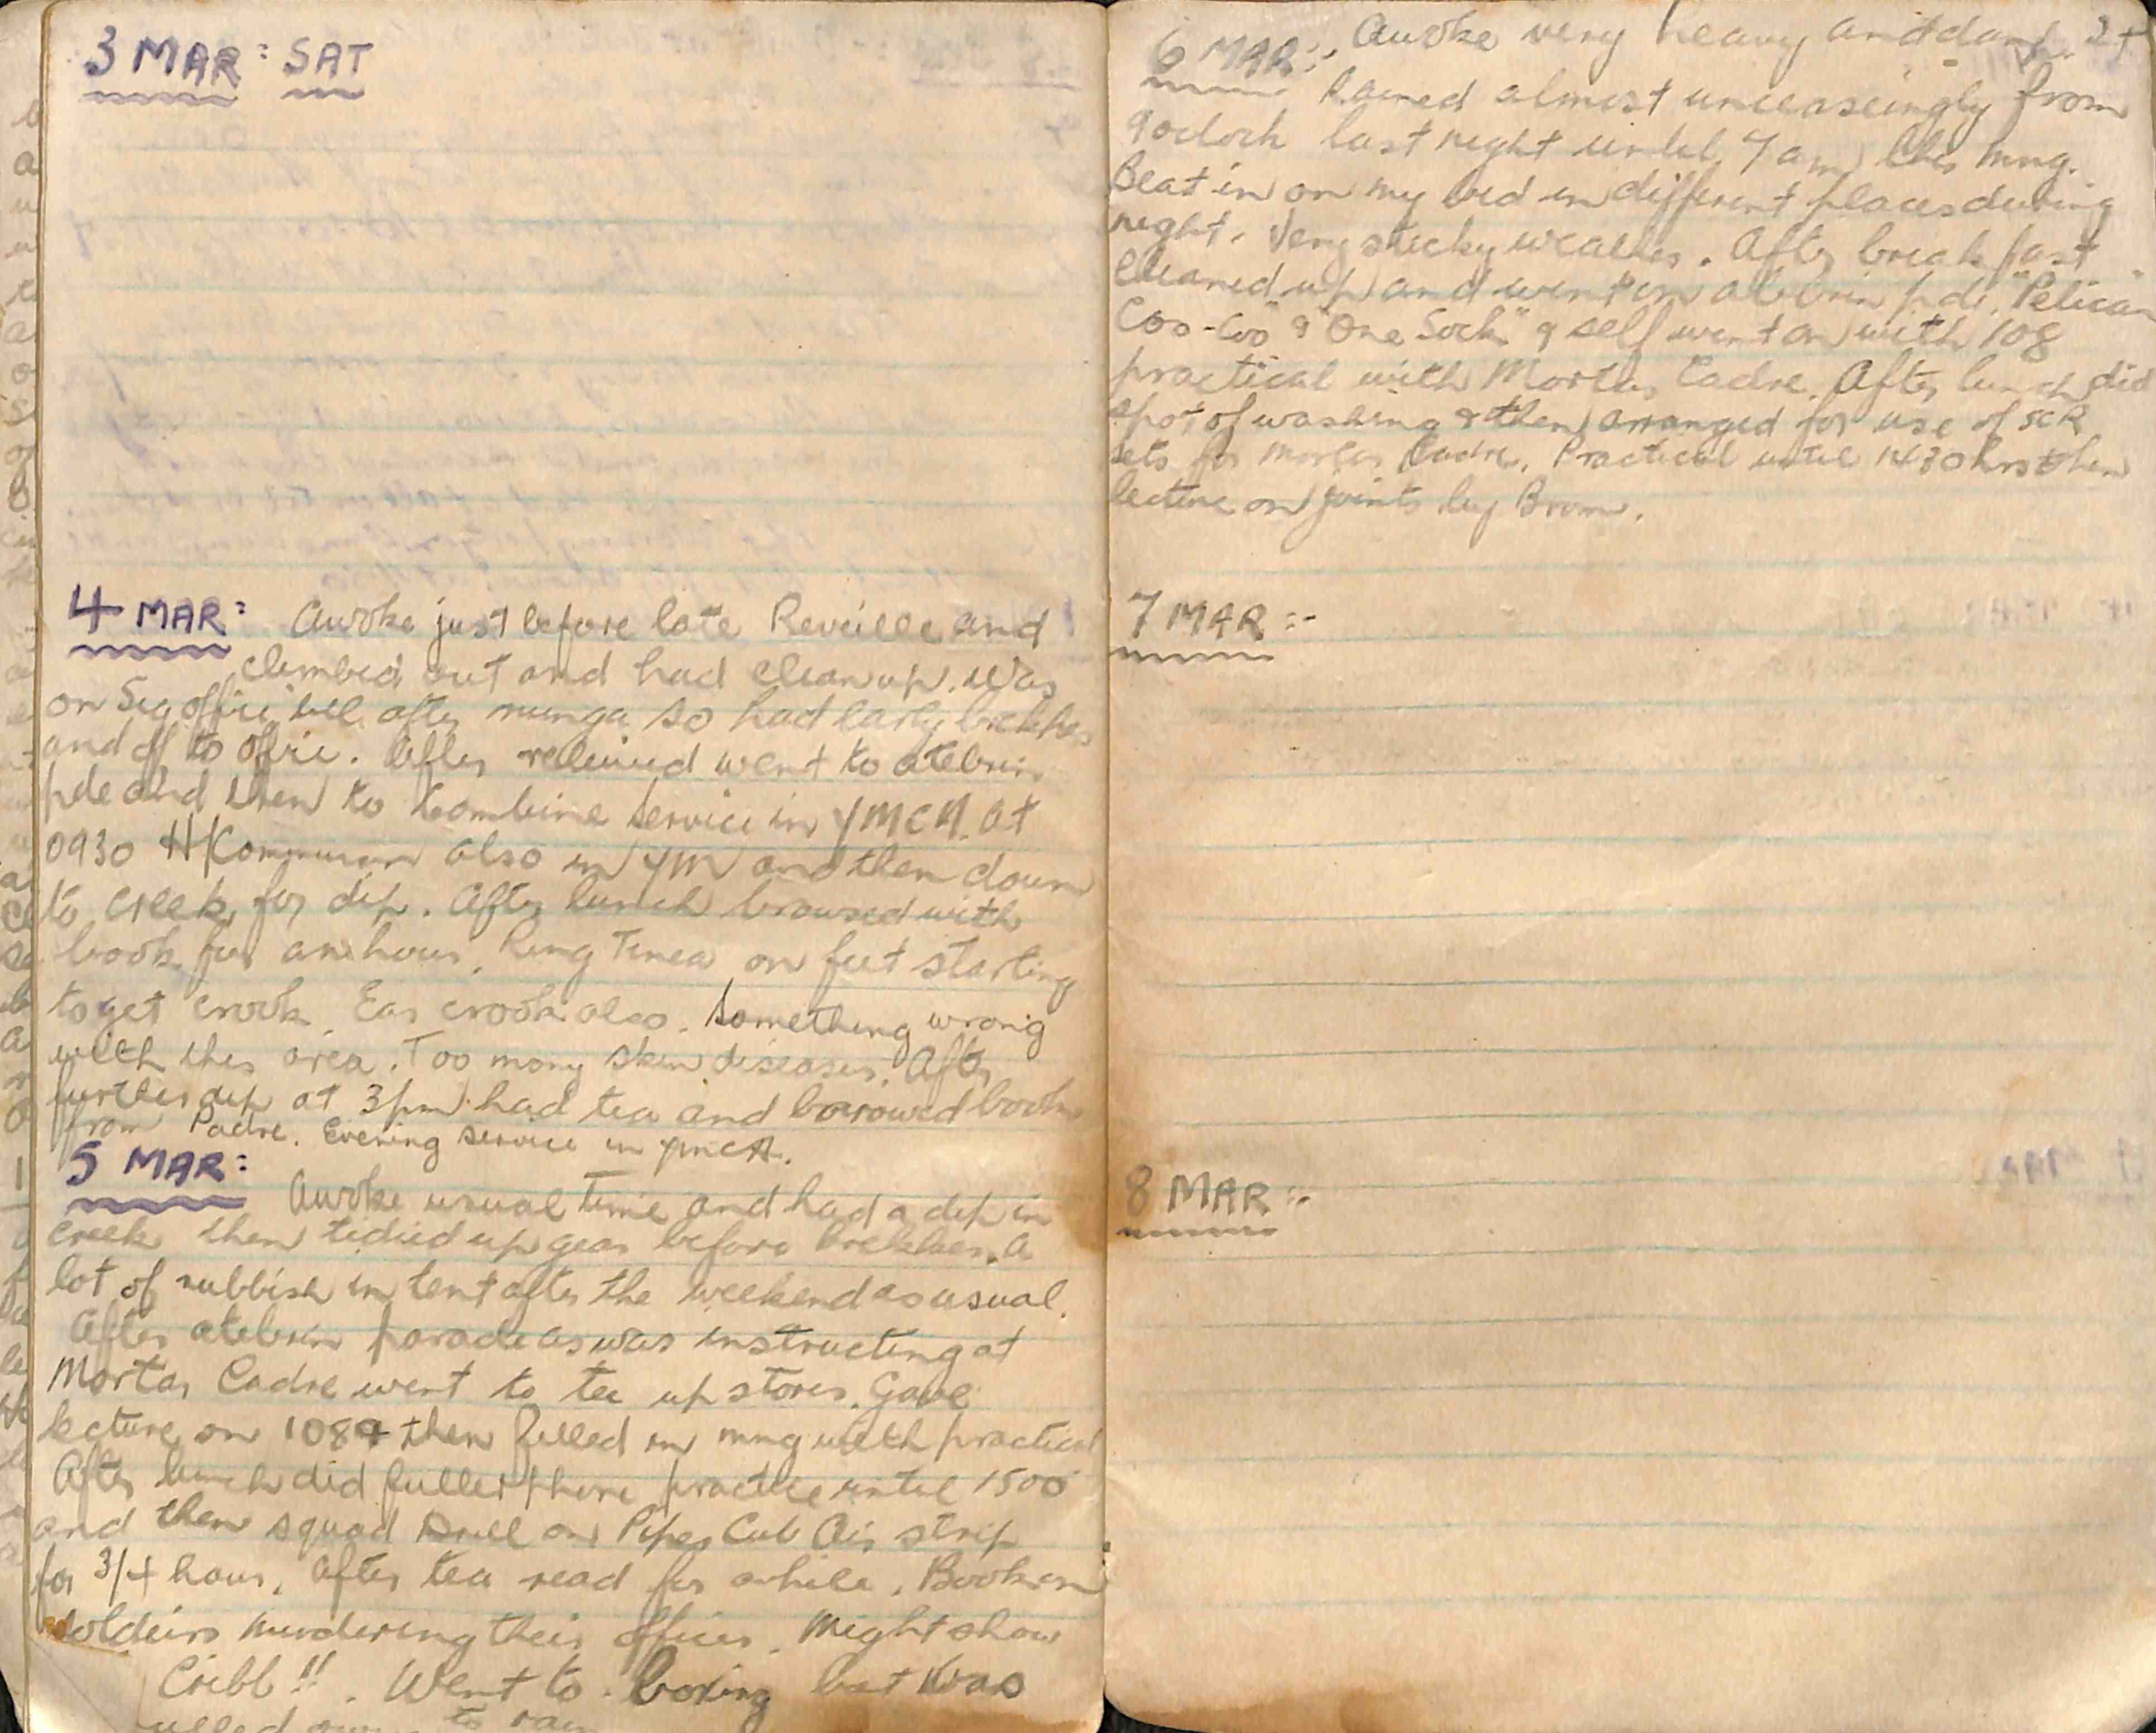 3 MAR: SAT
4 MAR: Awoke just before late Reveille and
climbed out and had clean up. Was
on Sig office after so had early brekker
and off to office. After relieved went to atebrin
pde and then to Combine Service in YMCA. At
0930 H/Kommunion also in YM and then down
to creek for dip. After lunch browsed with
book for an hour. Ring Tinea on feet starting
to get crook. Ear crook also. Something wrong
with this area. Too many skin diseases. After
further dip at 3pm had tea and borrowed book
from Padre. Evening service in YMCA.
5 MAR:
Awoke usual time and had a dip in
creek then tidied up gear before brekker. A
lot of rubbish in tent after the weekend as usual.
After atebrin parade as was instructing at
Mortar Cadre went to tee up stores. Gave
lecture on 108 & then filled in mng with practical
After lunch did fullerphone practice until 1500
and then squad Drill on Piper Cub Air strip
for 3/4 hour. After tea read for a while. Book on
soldeirs murdering their officer. Might show
Cribb!! . Went to boxing but was
to rain
6 MAR:- Awoke very heavy and
Rained almost unceaseingly from
9 oclock last night until 7 am this mng.
Beat in on my bed in different places during
night. Very sticky weather. After breakfast
cleaned up and went on atebrin pde. "Pelican"
Coo-Coo" & "One Sock" & self went on with 108
practical with Mortar Cadre. After lunch did
spot of washing & then arranged for use of SCR
sets for Mortar Cadre. Practical until 1430 hrs then
lecture on joints by Brom.
7 MAR:-
8 MAR:-